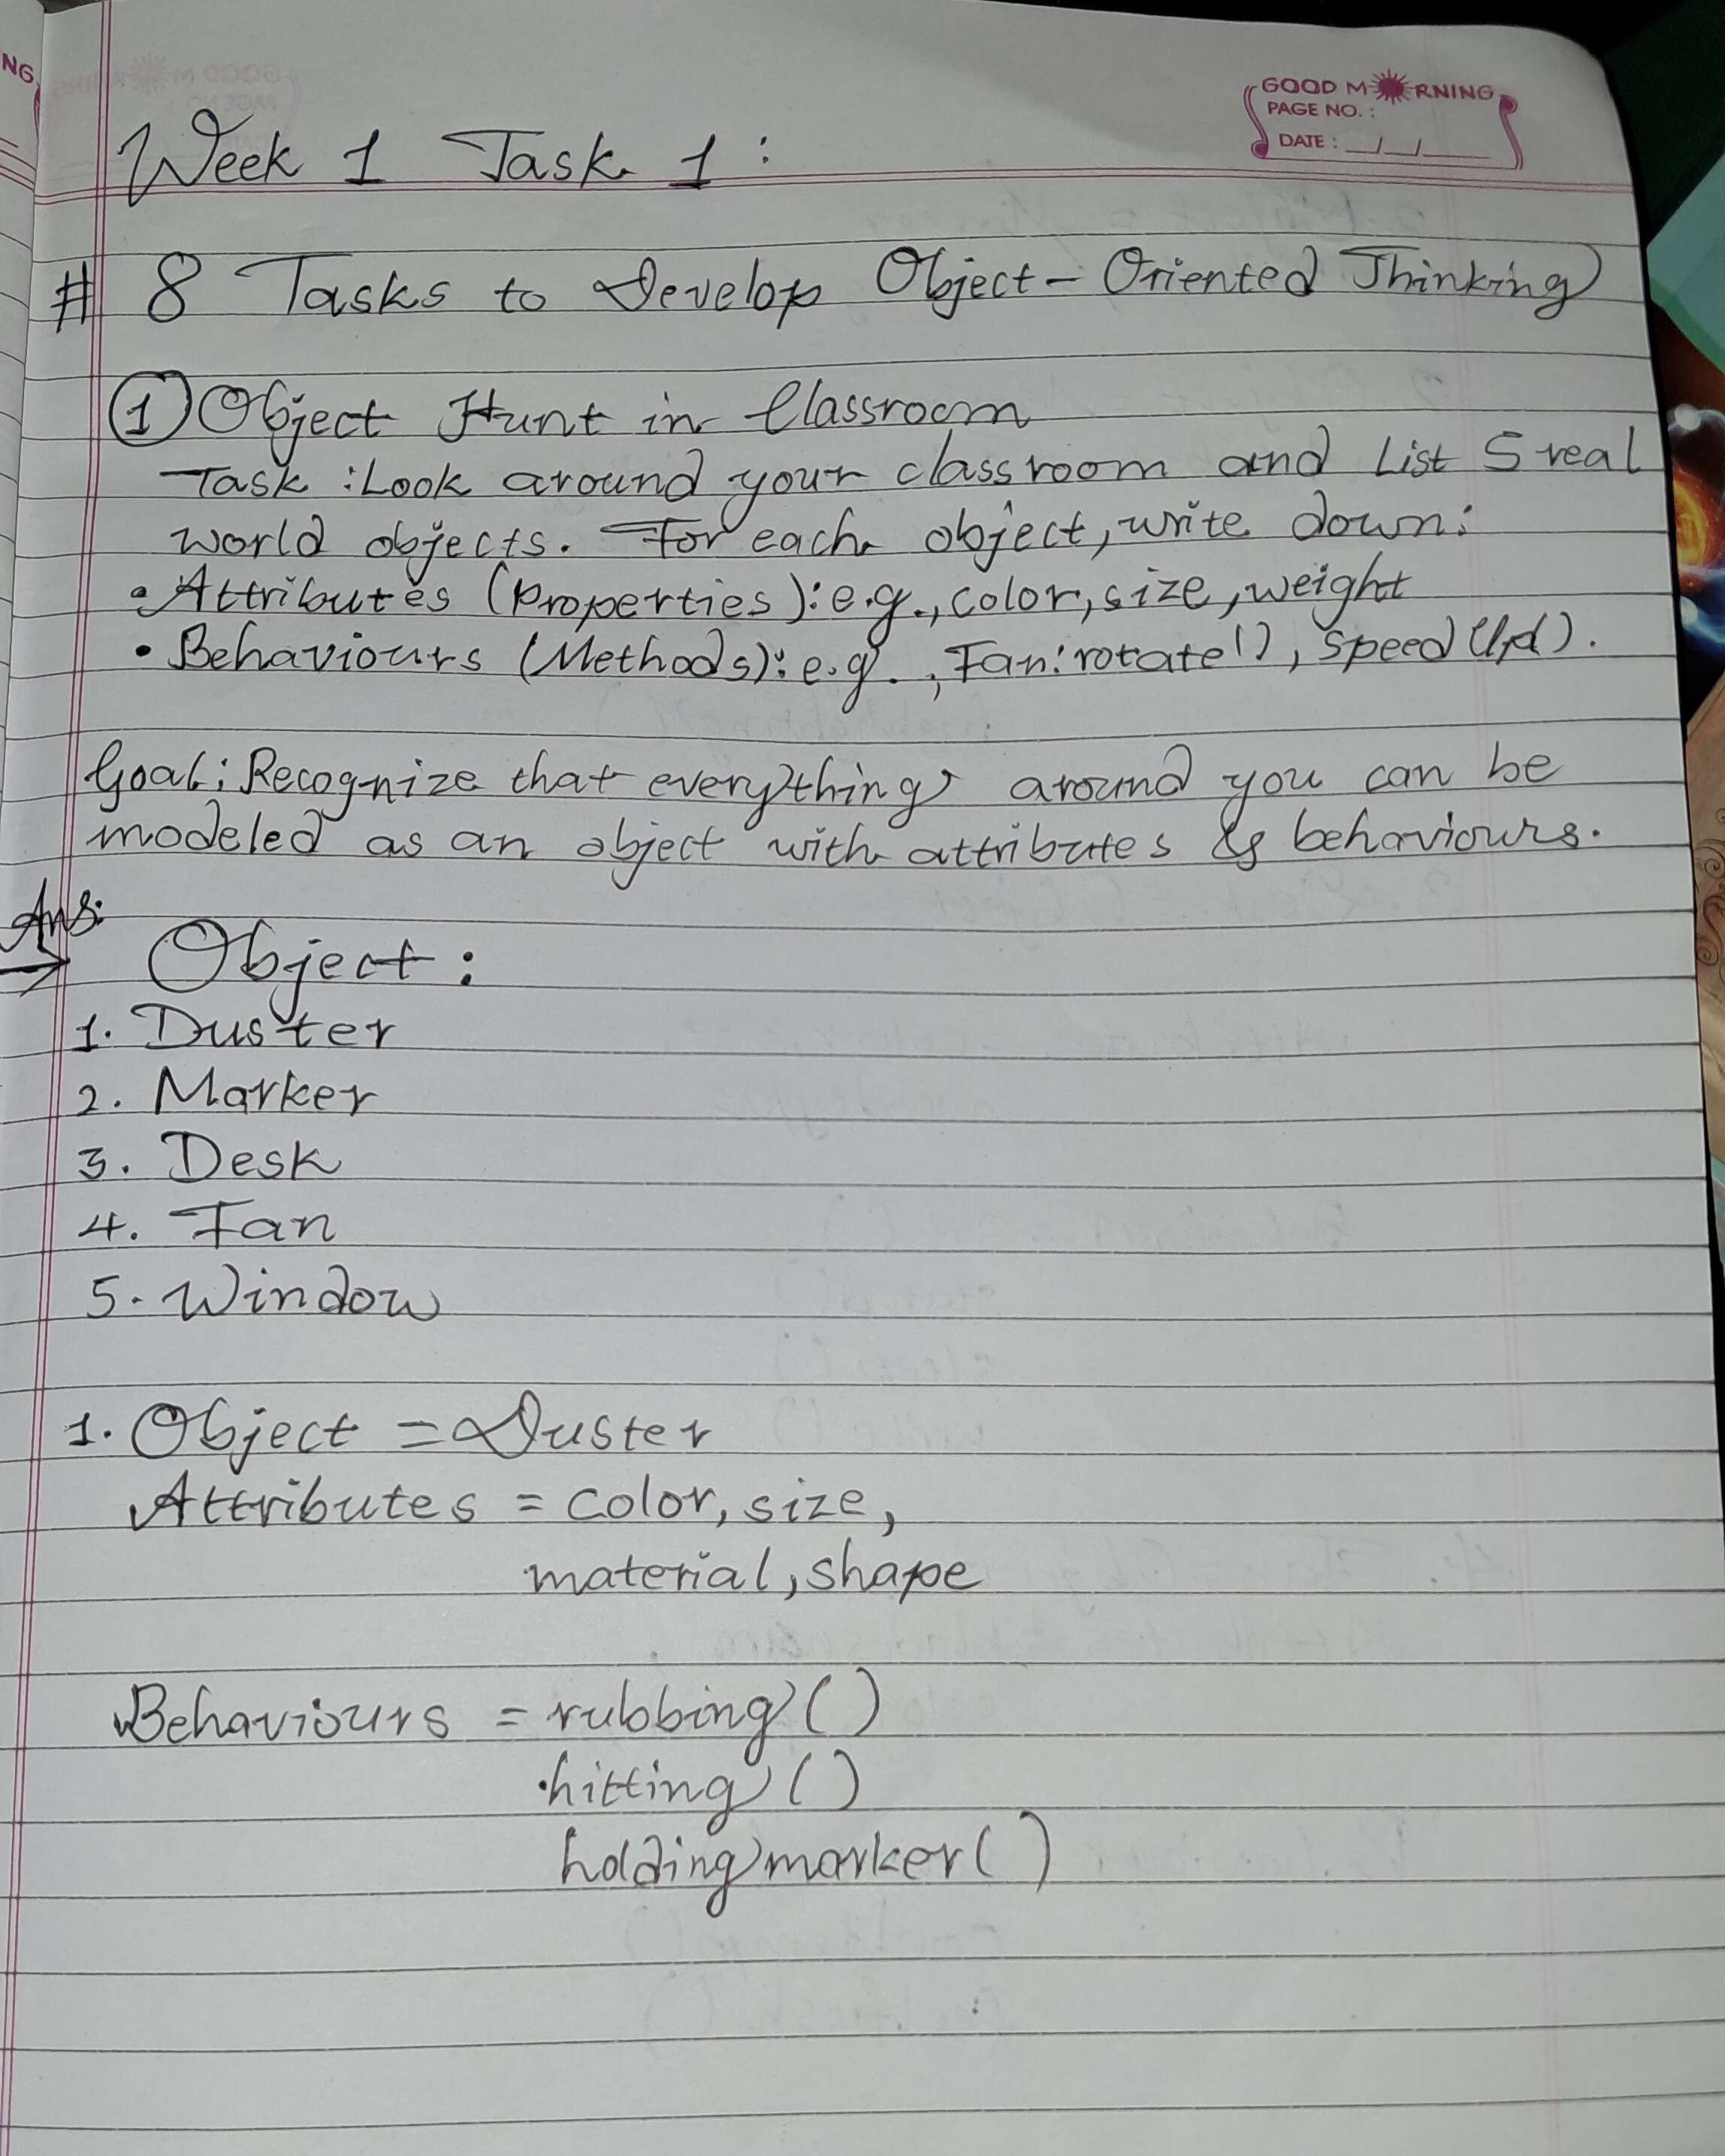 NG
GOOD M RNING
PAGE NO. :
DATE : __/__/____
Week 1 Task 1 :
# 8 Tasks to Develop Object-Oriented Thinking
1 Object Hunt in Classroom
Task : Look around your classroom and List 5 real
world objects. For each object, write down:
• Attributes (Properties): e.g., color, size, weight
• Behaviours (Methods): e.g., Fan: rotate(), speed Up().
Goal: Recognize that everything around you can be
modeled as an object with attributes & behaviours.
Ans:
→ Object :
1. Duster
2. Marker
3. Desk
4. Fan
5. Window
1. Object = Duster
Attributes = color, size,
material, shape
Behaviours = rubbing()
hitting()
holding marker()